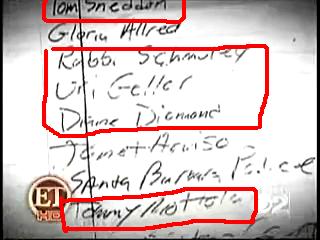 Tom Sneddon
Gloria Allred
Rabbi Schmuley
Uri Geller
Diane Diamond
Janet Arviso
Santa Barbara Police
Tommy Mottola
ET
HD